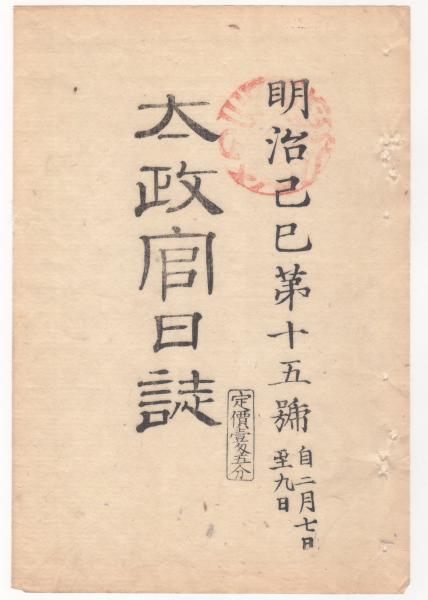 明治己巳第十五號
自二月七日
至九日
太政官日誌
定價壹匁五分